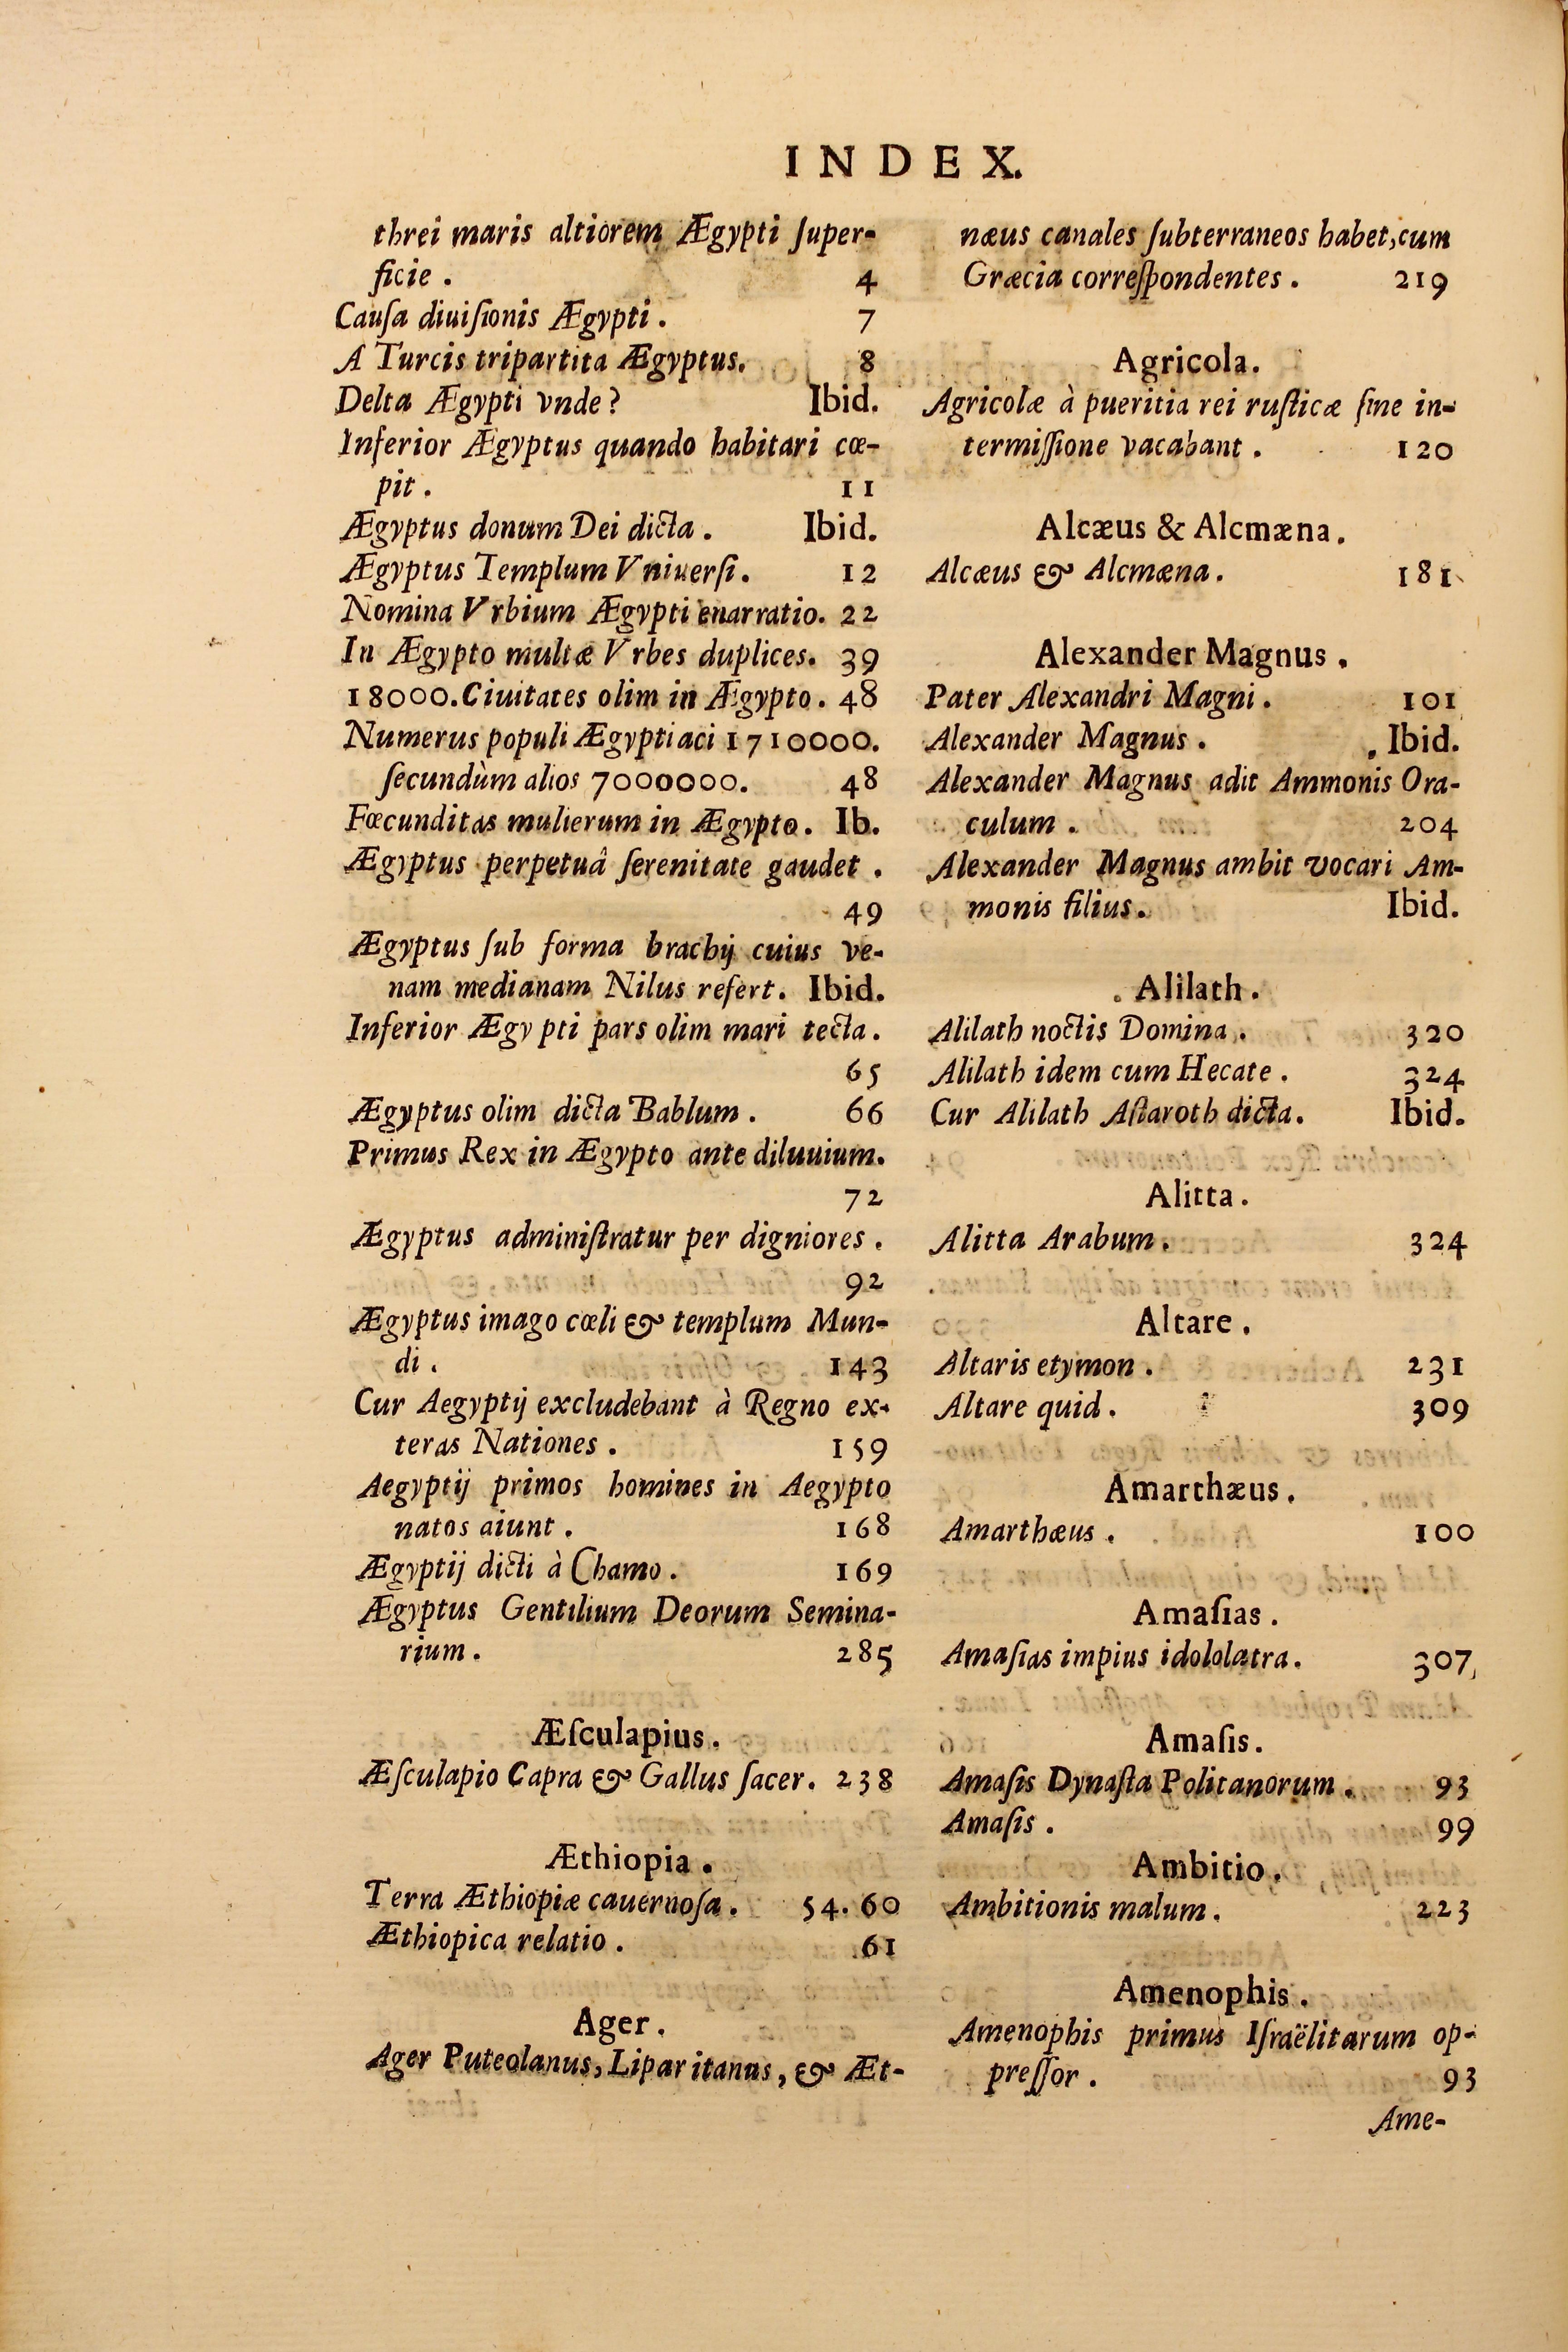 INDEX.
threi maris altiorem Ægypti ſuper-
ficie . 4
Cauſa diuiſionis Ægypti . 7
A Turcis tripartita Ægyptus. 8
Delta Ægypti vnde ? Ibid.
Inferior Ægyptus quando habitari cœ-
pit . 11
Ægyptus donum Dei dicta . Ibid.
Ægyptus Templum Vniuerſi . 12
Nomina Vrbium Ægypti enarratio. 22
In Ægypto multæ Vrbes duplices. 39
18000. Ciuitates olim in Ægypto . 48
Numerus populi Ægyptiaci 1710000.
ſecundùm alios 7000000. 48
Fœcunditas mulierum in Ægypto . Ib.
Ægyptus perpetuâ ſerenitate gaudet .
49
Ægyptus ſub forma brachij cuius ve-
nam medianam Nilus refert . Ibid.
Inferior Ægypti pars olim mari tecta .
65
Ægyptus olim dicta Bablum . 66
Primus Rex in Ægypto ante diluuium.
72
Ægyptus adminiſtratur per digniores .
92
Ægyptus imago cœli & templum Mun-
di . 143
Cur Aegyptij excludebant à Regno ex-
teras Nationes . 159
Aegyptij primos homines in Aegypto
natos aiunt . 168
Ægyptij dicti à Chamo . 169
Ægyptus Gentilium Deorum Semina-
rium . 285
Æſculapius .
Æſculapio Capra & Gallus ſacer . 238
Æthiopia .
Terra Æthiopiæ cauernoſa . 54. 60
Æthiopica relatio . 61
Ager .
Ager Puteolanus, Liparitanus, & Æt-
næus canales ſubterraneos habet, cum
Græcia correſpondentes . 219
Agricola.
Agricolæ à pueritia rei ruſticæ ſine in-
termiſſione vacabant . 120
Alcæus & Alcmæna .
Alcæus & Alcmæna . 181
Alexander Magnus .
Pater Alexandri Magni . 101
Alexander Magnus . Ibid.
Alexander Magnus adit Ammonis Ora-
culum . 204
Alexander Magnus ambit vocari Am-
monis filius . Ibid.
Alilath .
Alilath noctis Domina . 320
Alilath idem cum Hecate . 324
Cur Alilath Aſtaroth dicta . Ibid.
Alitta .
Alitta Arabum . 324
Altare .
Altaris etymon . 231
Altare quid . 309
Amarthæus .
Amarthæus . 100
Amaſias .
Amaſias impius idololatra . 307
Amaſis .
Amaſis Dynaſta Politanorum . 93
Amaſis . 99
Ambitio .
Ambitionis malum . 223
Amenophis .
Amenophis primus Iſraëlitarum op-
preſſor . 93
Ame-